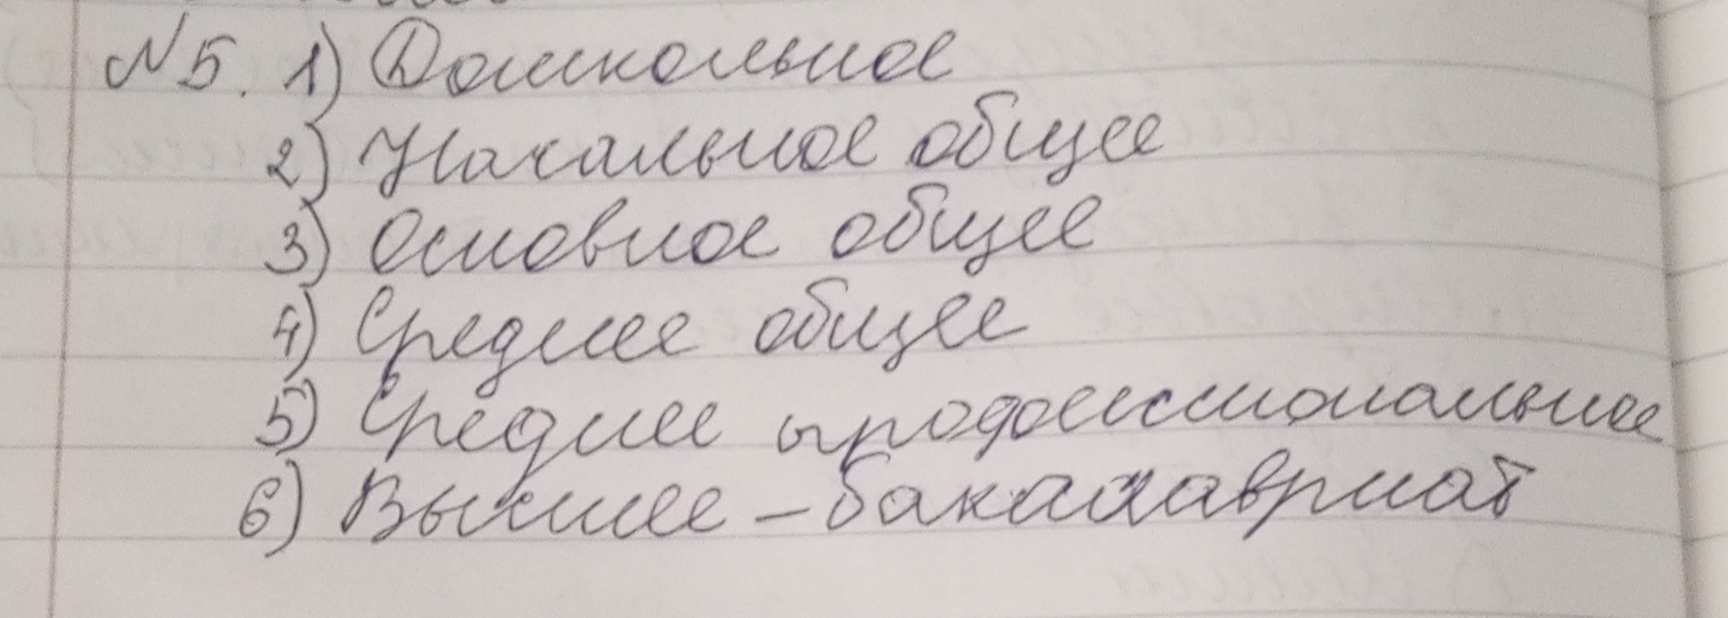 №5. 1) Дошкольное
2) Начальное общее
3) Основное общее
4) Среднее общее
5) Среднее профессиональное
6) Высшее – бакалавриат